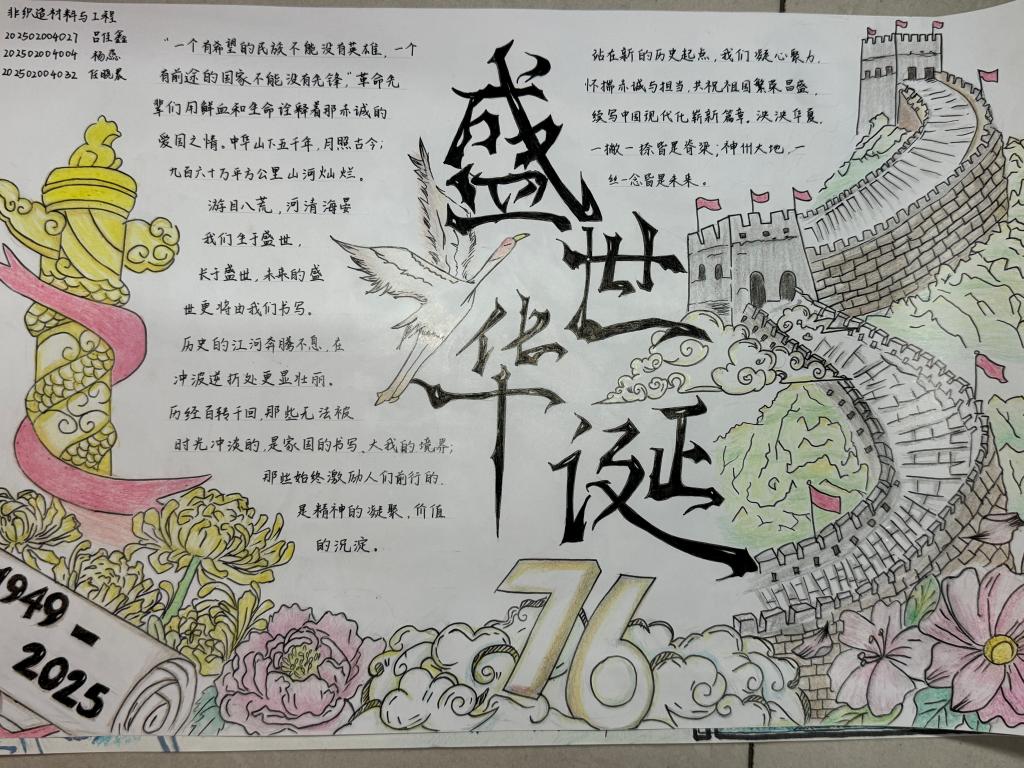 非织造材料与工程
202502004027 吕佳鑫
202502004004 杨蕊
202502004032 任晓晨
"一个有希望的民族不能没有英雄，一个
有前途的国家不能没有先锋，"革命先
辈们用鲜血和生命诠释着那赤诚的
爱国之情。中华山下五千年，月照古今；
九百六十万平方公里山河灿烂。
游目八荒，河清海晏
我们生于盛世，
长于盛世，未来的盛
世更将由我们书写。
历史的江河奔腾不息，在
冲波逆折处更显壮丽。
历经百转千回，那些无法被
时光冲淡的，是家国的书写、大我的境界；
那些始终激励人们前行的，
是精神的凝聚，价值
的沉淀。
盛世华诞
站在新的历史起点，我们凝心聚力，
怀揣赤诚与担当，共祝祖国繁荣昌盛，
续写中国现代化崭新篇章。泱泱华夏，
一撇一捺皆是脊梁；神州大地，一
丝一念皆是未来。
1949-
2025
76